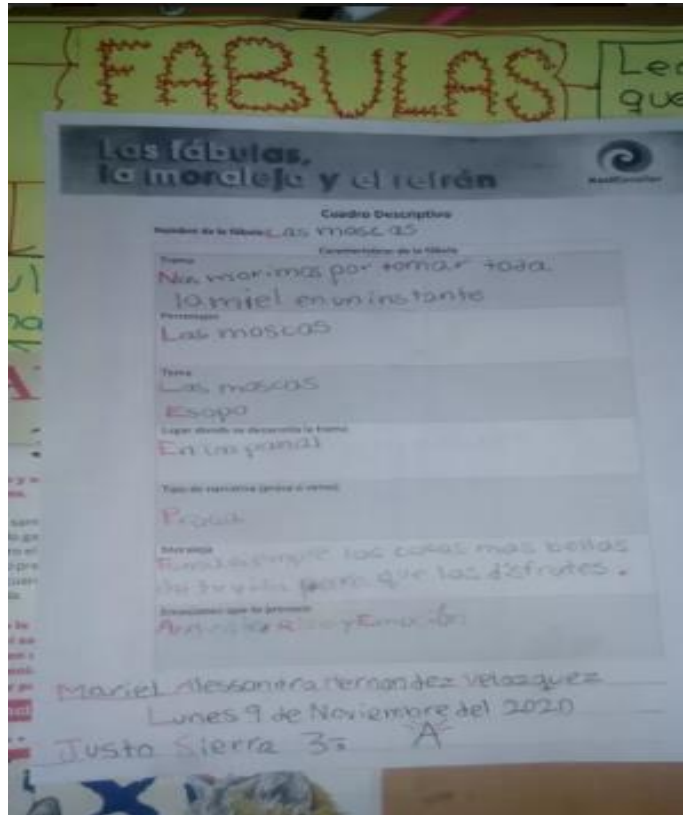 FABULAS
Lee
que
Las fábulas,
la moraleja y el refrán
Cuadro Descriptivo
Nombre de la fábula: Las moscas
Características de la fábula
Trama
Nos morimos por tomar toda
la miel en un instante
Personajes
Las moscas
Tema
Las moscas
Esopo
Lugar donde se desarrolla la trama
En un panal
Tipo de narrativa (prosa o verso)
Prosa
Moraleja
las cosas mas bellas
de tu vida para que las disfrutes.
Emociones que te provocó
Risa y Emoción
Mariel Alessandra Hernandez Velazquez
Lunes 9 de Noviembre del 2020
Justo Sierra 3º A